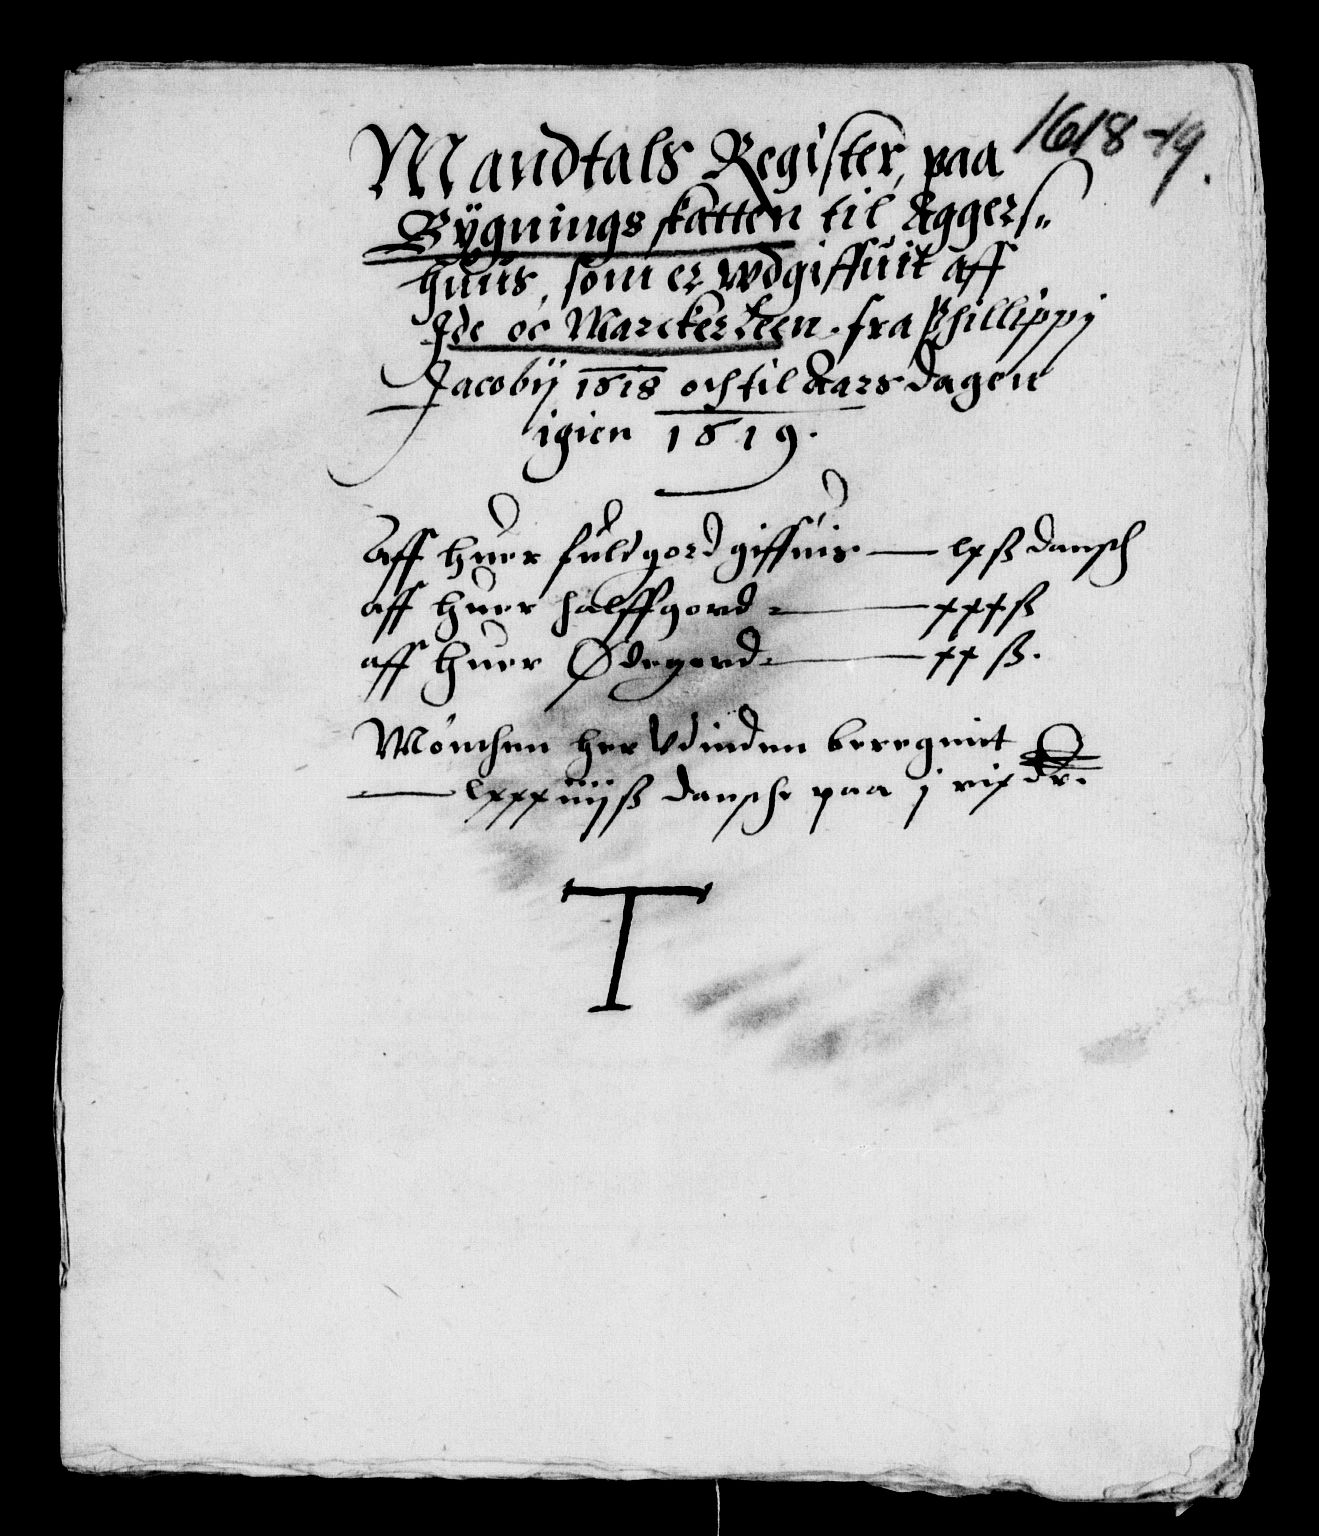 1618-19.
Mandtals Register, paa
Bÿgnings skatten til Aggers„
huus, som er wdgiffuit aff
Ide oc Marcker Leen. fra Phillippj
Jacobÿ 1618 och til Aarsdagen
igien 1619.
Aff huer fuldgord giffuis — lxß dansch
aff huer halffgord — xxxß
aff huer Ødegord — xx ß.
Mönthen her Vdinden beregnit
— lxxxiiijß dansche paa j rix dr.
T